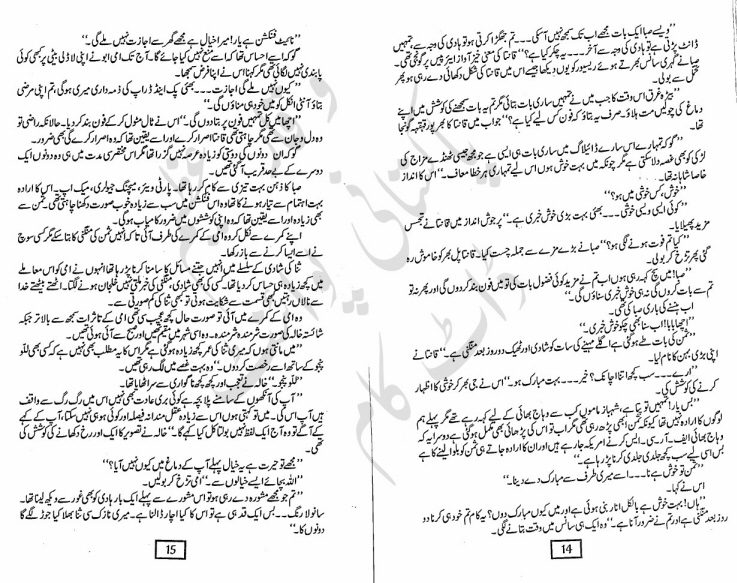 "ویسے صبا ایک بات مجھے اب تک سمجھ نہیں آ سکی... تم جھگڑا کرتی ہو تو ہادی کی وجہ سے، تمہیں
ڈانٹ پڑتی ہے تو ہادی کی وجہ سے آخر... یہ چکر کیا ہے؟" قانتا کی معنی خیز آواز ایئر پیس پر گونجی تھی۔
صبا نے گہری سانس بھرتے ہوئے ریسیور کو یوں دیکھا جیسے اس میں قانتا کی شکل دکھائی دے رہی ہو پھر
تحمل سے بولی۔
"بیڑہ غرق اس وقت کا جب میں نے تمہیں ساری بات بتائی مگر تم یہ بات سمجھنے کی کوشش میں اپنے
دماغ کی چولیں مت ہلاؤ۔ صرف یہ بتاؤ کہ فون کس لیے کیا ہے؟" جواب میں قانتا کا بھرپور قہقہہ گونجا
تھا۔
"گو کہ تمہارے اس سارے ڈائیلاگ میں ساری بات ہی ایسی ہے جو مجھ جیسی ٹھنڈے مزاج کی
لڑکی کو بھی غصہ دلا سکتی ہے مگر چونکہ میں بہت خوش ہوں اس لیے تمہاری ہر خطا معاف۔" اس کا انداز
خاصا شاہانہ تھا۔
"خوش، کس خوشی میں ہو؟"
"کوئی ایسی ویسی خوشی... بھئی بہت بڑی خوش خبری ہے۔" پرجوش انداز میں قانتا نے تجسس
مزید پھیلایا۔
"کیا تم فوت ہونے لگی ہو؟" صبا نے بڑے مزے سے جملہ چست کیا۔ قانتا پل بھر کو خاموش رہ
گئی پھر تڑخ کر بولی۔
"صبا! میں سچ کہہ رہی ہوں اب تم نے مزید کوئی فضول بات کی تو میں فون بند کر دوں گی اور پھر نہ تو
تم سے بات کروں گی نہ ہی خوش خبری سناؤں گی۔"
اب ہنسنے کی باری صبا کی تھی۔
"اچھا بابا! اب سنا بھی چکو خوش خبری۔"
"ثمن کی بات طے ہو گئی ہے اگلے مہینے کی سات کو شادی اور ٹھیک دو روز بعد منگنی ہے۔" قانتا نے
اپنی بڑی بہن کا نام لیا۔
"ارے... سب کچھ اتنا اچانک؟ خیر... بہت مبارک ہو۔" اس نے جی بھر کر خوشی کا اظہار
کرنے کی کوشش کی۔
"بس یار! تمہیں تو پتا ہے، شہباز ماموں کب سے وہاج بھائی کے لیے کہہ رہے تھے مگر پہلے ہم
لوگوں کا ارادہ نہیں تھا کیونکہ ثمن ابھی پڑھ رہی تھی مگر اب تو اس کی پڑھائی بھی مکمل ہو گئی ہے دوسرا یہ کہ
وہاج بھائی ایف۔ آر۔ سی۔ ایس کرنے امریکہ جا رہے ہیں اور ان کا ارادہ جاتے ہی ثمن کو بلوا لینے کا ہے
بس اسی لیے سب کچھ جلدی جلدی کرنا پڑ رہا ہے۔"
"ثمن تو خوش ہے نا... اسے میری طرف سے مبارک دے دینا۔"
اس نے کہا۔
"ہاں! بہت خوش ہے بالکل انار بنی ہوئی ہے اور میں کیوں مبارک دوں؟ یہ کام تم خود ہی کرنا دو
روز بعد منگنی ہے اور تم نے ضرور آنا ہے۔" وہ ایک ہی سانس میں وقت بتانے لگی۔
14
"نائیٹ فنکشن ہے یار! میرا خیال ہے مجھے گھر سے اجازت نہیں ملے گی۔"
گو کہ اسے احساس تھا کہ اسے منع نہیں کیا جائے گا۔ آج تک امی ابو نے اپنی لاڈلی بیٹی پر کبھی کوئی
پابندی نہیں لگائی تھی مگر کہنا اس نے اپنا فرض سمجھا۔
"کیوں نہیں ملے گی اجازت... بھئی پک اینڈ ڈراپ کی ذمہ داری میری ہو گی، تم اپنی مرضی
بتاؤ آنٹی انکل کو میں خود ہی مناؤں گی۔"
"اچھا میں کل تمہیں فون پر بتا دوں گی۔" اس نے ٹال مٹول کر کے فون بند کر دیا۔ حالانکہ راضی تو
وہ دل و جان سے تھی مگر چاہتی تھی قانتا اصرار کرے اور اسے یقین تھا کہ وہ اصرار کرے گی بھی ضرور۔
گو کہ ان دونوں کی دوستی کو زیادہ عرصہ نہیں گزرا تھا مگر اس مختصر سی مدت میں ہی وہ دونوں ایک
دوسرے کے بے حد قریب آ گئی تھیں۔
صبا کا ذہن بہت تیزی سے کام کر رہا تھا۔ پارٹی ویئر، میچنگ جیولری، میک اپ۔ اس کا ارادہ
بہت اہتمام سے تیار ہونے کا تھا وہ اس فنکشن میں سب سے زیادہ خوب صورت دکھنا چاہتی تھی۔ ثمن سے
بھی زیادہ اور اسے یقین تھا کہ وہ اپنی کوششوں میں ضرور کامیاب ہو گی۔
اپنے کمرے سے نکل کر وہ امی کے کمرے کی طرف آئی تاکہ انہیں ثمن کی منگنی کا بتا سکے مگر کسی سوچ
نے اسے ایسا کرنے سے باز رکھا۔
ثنا کی شادی کے سلسلے میں انہیں جتنے مسائل کا سامنا کرنا پڑ رہا تھا انہوں نے امی کو اس معاملے
میں کچھ زیادہ ہی حساس کر دیا تھا۔ کسی کی بھی شادی، منگنی کی خبر ملتی تو انہیں خلجان ہونے لگتا۔ اٹھتے بیٹھتے خدا
سے نالاں رہتیں کبھی قسمت سے شکایت ہوتی تو کبھی ثنا کی کم صورتی سے۔
وہ امی کے کمرے میں آئی تو صورت حال کچھ عجیب سی تھی امی کے تاثرات سمجھ سے بالاتر جبکہ
شائستہ خالہ کی صورت شرمندہ شرمندہ۔ وہ اسی شہر میں مقیم تھیں اور صبح سے آئی ہوئی تھیں۔
"میں مانتی ہوں کہ میری ثنا کی عمر کچھ زیادہ ہو گئی ہے مگر اس کا یہ مطلب بھی نہیں ہے کہ کسی بھی للو
پنچو کے ساتھ اسے رخصت کر دوں۔" وہ بہت غصے میں لگ رہی تھیں۔
"للو پنچو۔" خالہ نے تعجب اور کچھ کچھ ناگواری سے سر اٹھایا تھا۔
"آپ کی آنکھوں کے سامنے پلا بچہ ہے کوئی بری عادت بھی نہیں اس میں رگ رگ سے واقف
ہیں آپ اس کی۔ میں تو کہتی ہوں اس سے زیادہ عقل مندانہ فیصلہ اور کوئی ہو ہی نہیں سکتا، آپ کے کہے
کے آگے تو وہ آج ایک لفظ نہیں بولتا کل کیا کہے گا۔" خالہ نے تصویر کا ایک اور رخ دکھانے کی کوشش کی
تھی۔
"مجھے تو حیرت ہے یہ خیال پہلے آپ کے دماغ میں کیوں نہیں آیا؟"
"اللہ بچائے ایسے خیالوں سے۔" امی تڑخ کر بولیں۔
"تم جو مجھے مشورہ دے رہی ہو تو اس مشورے سے پہلے ایک بار ہادی کو بھی غور سے دیکھ لینا تھا۔
سانولا رنگ... بس ایک قد ہی ہے تو اس کا کیا اچار ڈالنا ہے۔ میری نازک سی ثنا بھلا کیا جوڑ لگے گا
دونوں کا۔"
15